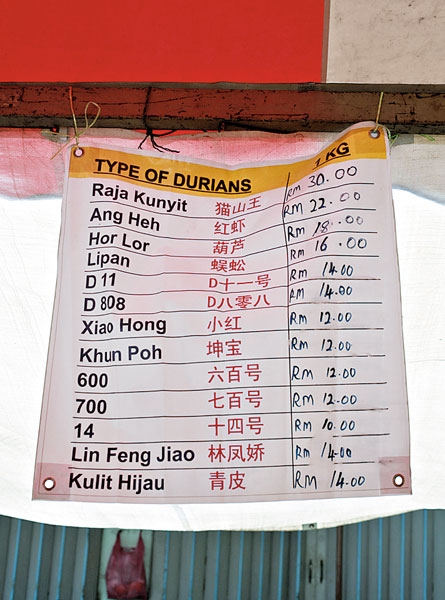 TYPE OF DURIANS 1 KG
Raja Kunyit 猫山王 RM 30.00
Ang Heh 红虾 RM 22.00
Hor Lor 葫芦 RM 18.00
Lipan 蜈蚣 RM 16.00
D 11 D十一号 RM 14.00
D 808 D八零八 RM 14.00
Xiao Hong 小红 RM 12.00
Khun Poh 坤宝 RM 12.00
600 六百号 RM 12.00
700 七百号 RM 12.00
14 十四号 RM 10.00
Lin Feng Jiao 林凤娇 RM 14.00
Kulit Hijau 青皮 RM 14.00